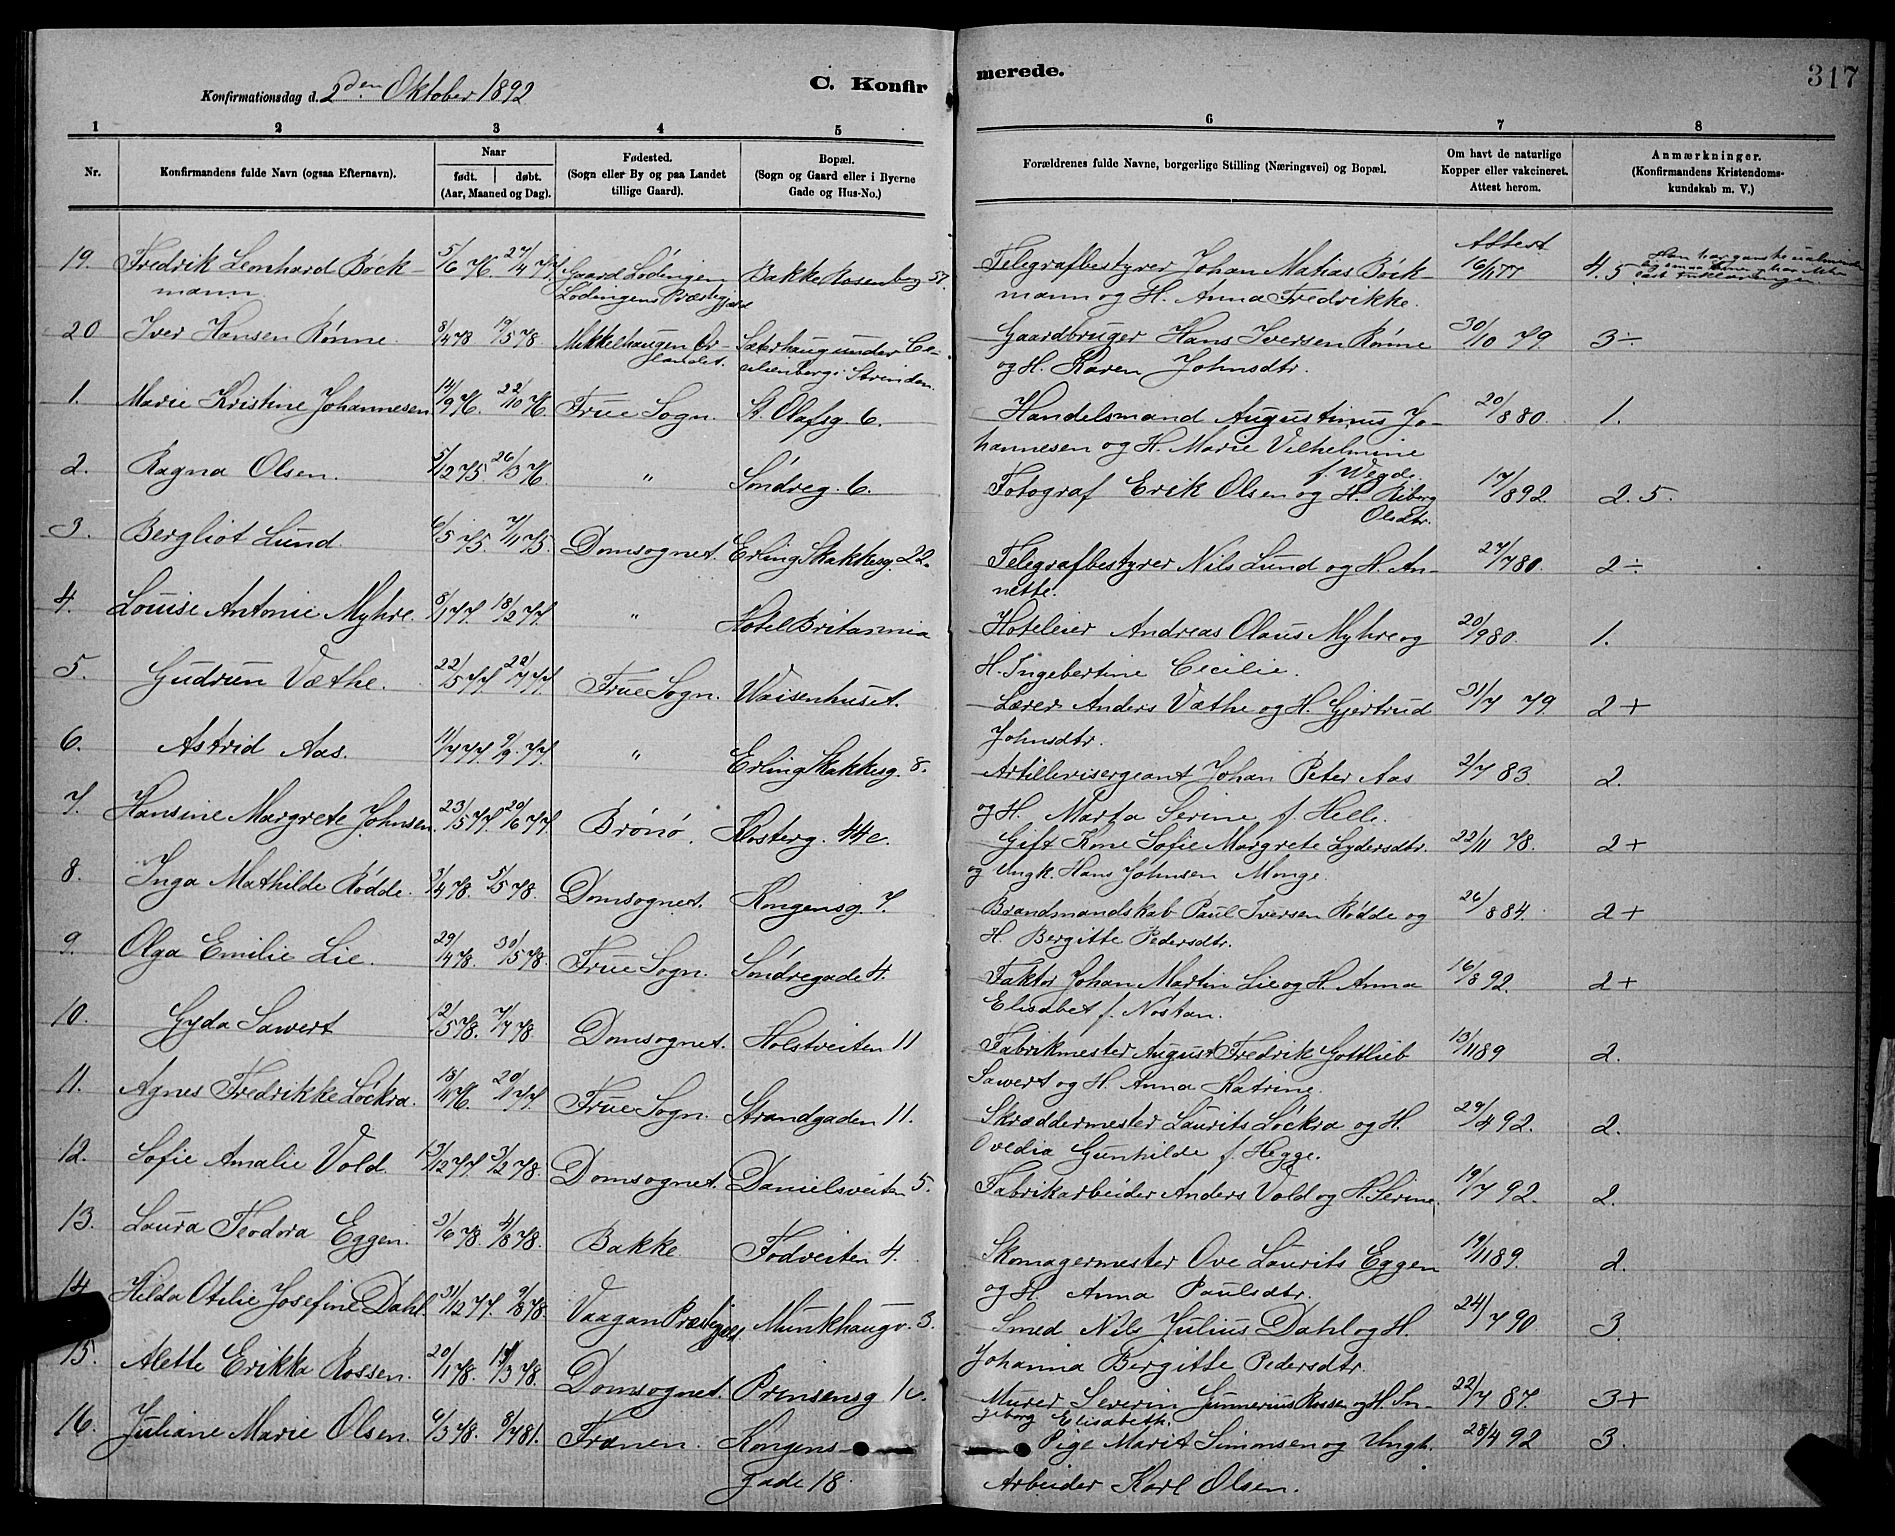 Konfirmationsdag d. 2den Oktober 1892
C. Konfirmerede.
317
1 2 3 4 5 6 7 8
Nr.
Konfirmandens fulde Navn (ogsaa Efternavn).
Naar
født. døbt.
(Aar, Maaned og Dag).
Fødested.
(Sogn eller By og paa Landet
tillige Gaard).
Bopæl.
(Sogn og Gaard eller i Byerne
Gade og Hus-No.)
Forældrenes fulde Navne, borgerlige Stilling (Næringsvei) og Bopæl.
Om havt de naturlige
Kopper eller vakcineret.
Attest herom.
Anmærkninger.
(Konfirmandens Kristendoms-
kundskab m. V.)
19. Fredrik Leonhard Böck- 5/6 76. 27/4 77. Gaard Lödingen Bakke Rosenborg 57. Telegrafbestyrer Johan Matias Böck- Attest 16/1 77 4.5
mann Lödingens Præstegjæld mann og H. Anna Fredrikke.
20 Iver Hansen Rönne. 8/4 78 19/5 78 Mikkelhaugen Ør- Sæterhaug under Ce- Gaardbruger Hans Iversen Rönne 30/10 79. 3÷
landet. cilienberg i Strinden. og H. Karen Johnsdtr.
1. Marie Kristine Johannesen 14/9 76. 22/10 76. Frue Sogn. St. Olafsg. 6. Handelsmand Augustinus Jo- 20/8 80. 1.
hannesen og H. Marie Vilhelmine
f. Wegde.
2. Ragna Olsen. 5/12 75. 26/3 76. " Söndreg. 6. Fotograf Erik Olsen og H. Riborg 17/8 92. 2.5.
Olsdtr.
3. Bergliot Lund. 6/5 75. 7/11 75. Domsognet. Erling Skakkesg. 22. Telegrafbestyrer Nils Lund og H. An- 27/7 80. 2÷
nette.
4. Louise Antonie Myhre. 8/1 77. 18/2 77. " Hotel Britannia Hoteleier Andreas Olaus Myhre og 20/9 80. 1.
H. Ingebertine Cecilie.
5. Gudrun Væthe. 22/5 77 22/7 77. Frue Sogn. Waisenhuset. Lærer Anders Væthe og H. Gjertrud 31/7 79. 2+
Johnsdtr.
6. Astrid Aas. 11/7 77. 9/9 77. " Erling Skakkesg. 8. Artillerisergeant Johan Peter Aas 2/7 83. 2.
og H. Marta Serine f. Helle.
7. Hansine Margrete Johnsen. 23/5 77. 20/6 77. Brönö. Klosterg. 44c. Gift Kone Sofie Margrete Lydersdtr. 22/11 78. 2+
og Ungk. Hans Johnsen Monge.
8. Inga Mathilde Rödde. 3/4 78. 5/5 78. Domsognet. Kongensg. 7. Brandmandskab Paul Iversen Rödde og 26/8 84. 2+
H. Bergitte Pedersdtr.
9. Olga Emilie Lie. 29/4 78. 30/5 78. Frue Sogn. Söndregade 4. Faktor Johan Martin Lie og H. Anna 16/8 92. 2+
Elisabet f. Nostan.
10. Gyda Sawert 12/5 78. 7/7 78. Domsognet. Holstveiten 11 Fabrikmester August Fredrik Gottlieb 13/11 89 2.
Sawert og H. Anna Katrine.
11. Agnes Fredrikke Löckra. 18/11 76. 20/1 77. Frue Sogn. Strandgaden 11. Skræddermester Laurits Löckra og H. 29/4 92. 2.
Ovedia Gunhilde f. Hegge.
12. Sofie Amalie Vold. 13/12 77. 3/2 78. Domsognet. Danielsveiten 5. Fabrikarbeider Anders Vold og H. Serine. 19/7 92. 2.
13. Laura Teodora Eggen. 3/6 78. 4/8 78. Bakke Fodveiten 4. Skomagermester Ove Laurits Eggen 19/11 89. 2.
og H. Anna Paulsdtr.
14. Hilda Otilie Josefine Dahl. 31/12 77. 9/8 78. Vaagan Præstegjæld Munkhaugv. 3. Smed Nils Julius Dahl og H. 24/7 90 3.
Johanna Bergitte Pedersdtr.
15. Alette Erikka Rossen. 20/1 78. 17/3 78. Domsognet. Prinsensg. Murer Severin Gunnerius Rossen og H. In- 22/7 87. 3+
geborg Elisabeth.
16. Juliane Marie Olsen. 9/3 78. 8/4 81. Frænen. Kongens- Pige Marit Simonsen og Ungk. 28/4 92 3.
gade 18. Arbeider Karl Olsen.